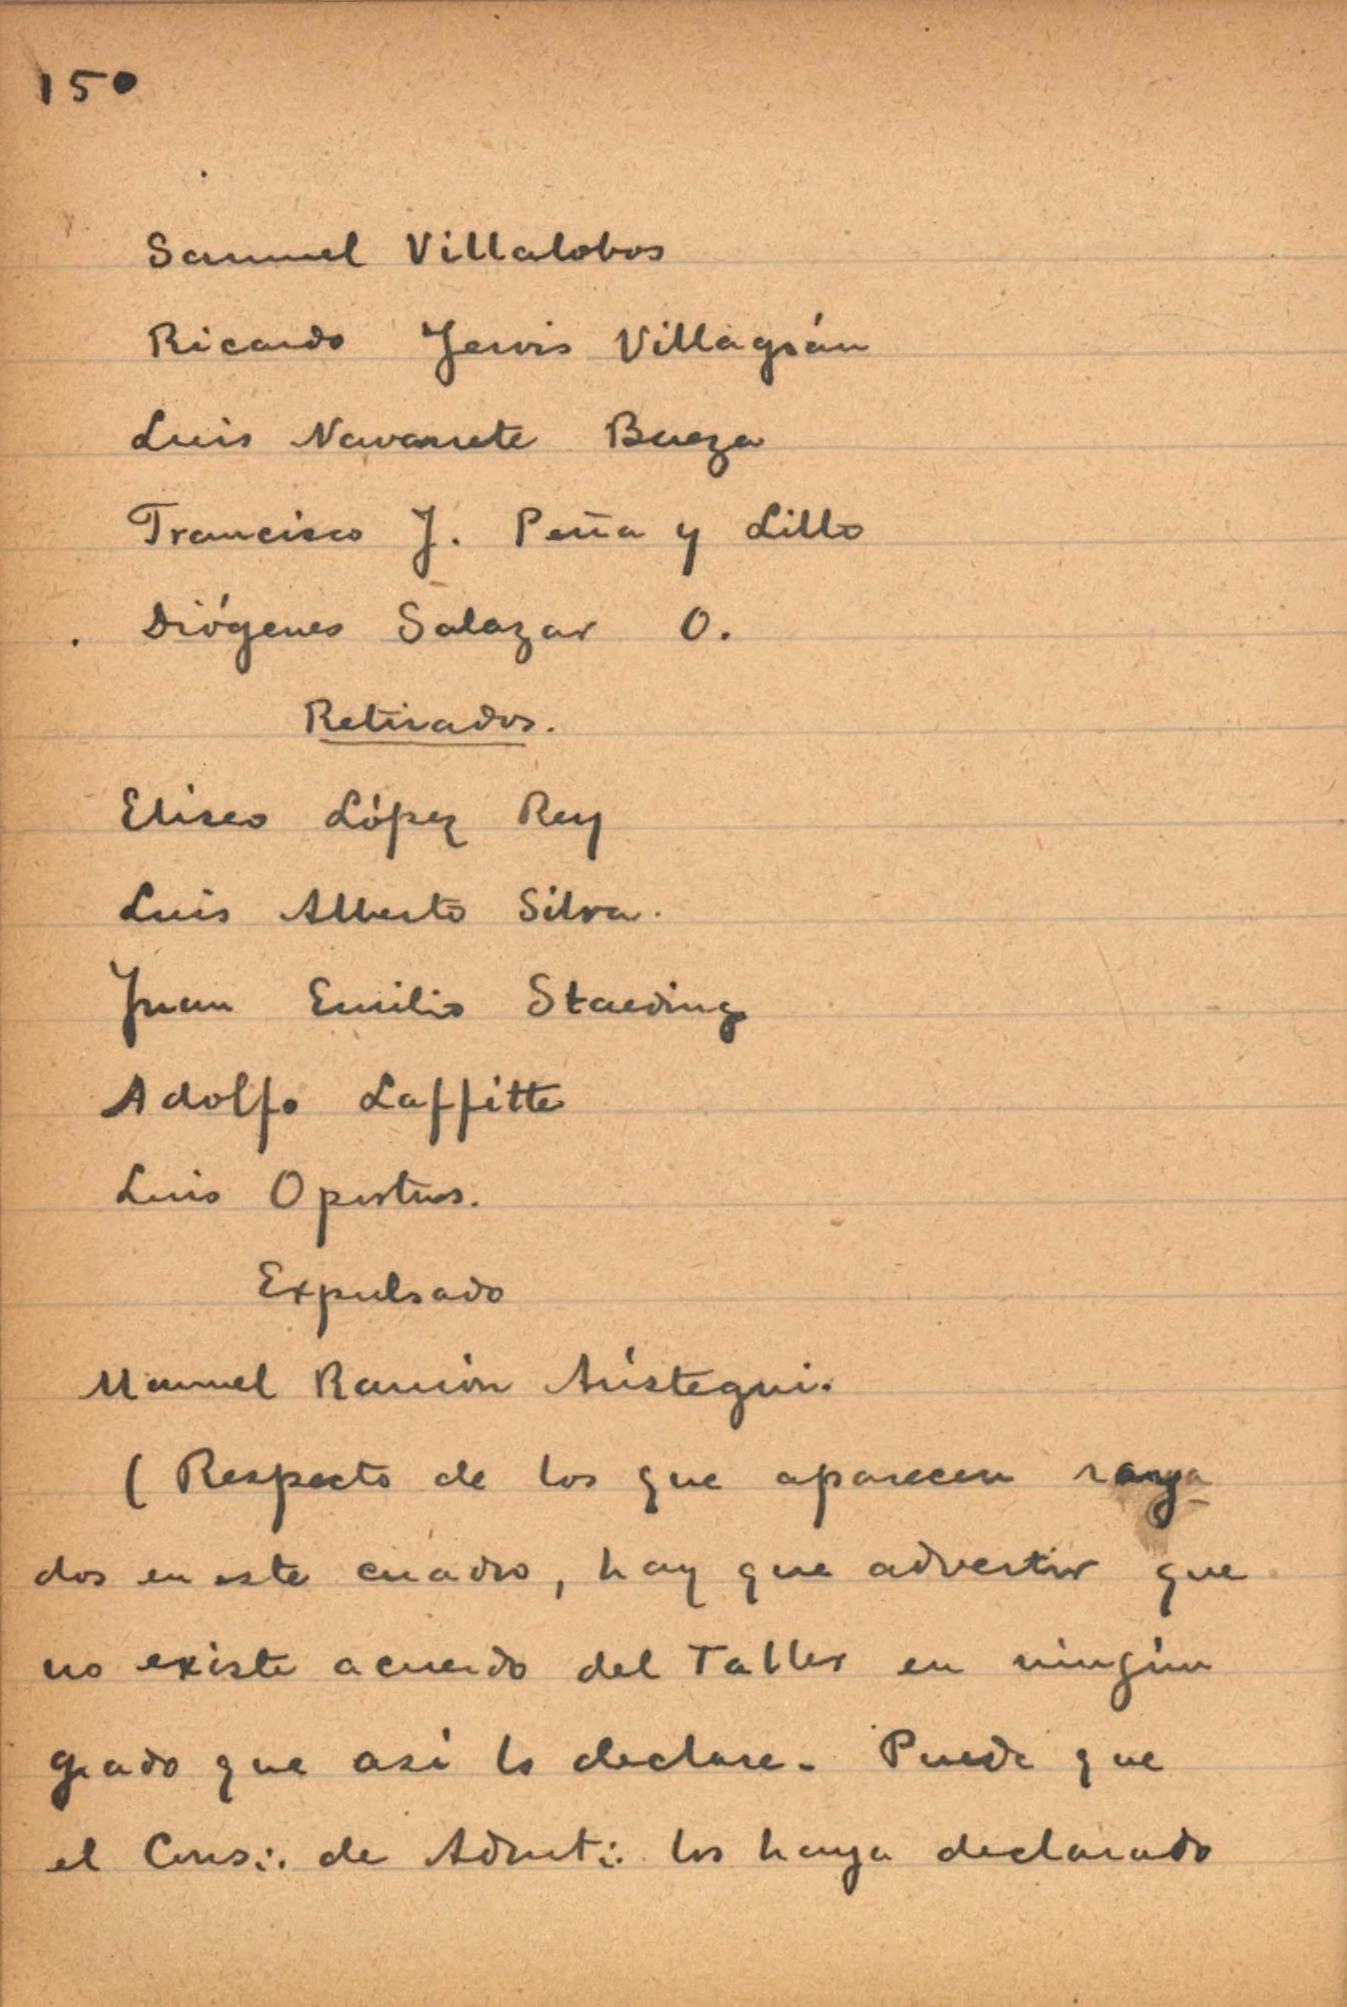 150
Samuel Villalobos
Ricardo Jervis Villagrán
Luis Navarrete Baeza
Francisco J. Peña y Lillo
Diógenes Salazar O.
Retirados.
Eliseo López Rey
Luis Alberto Silva.
Juan Emilio Staeding
Adolfo Laffitte
Luis Oportus.
Expulsado
Manuel Ramón Arístegui.
(Respecto de los que aparecen raya-
dos en este cuadro, hay que advertir que
no existe acuerdo del Taller en ningún
grado que así lo declare. Puede que
el Cons∴ de Admt∴ los haya declarado